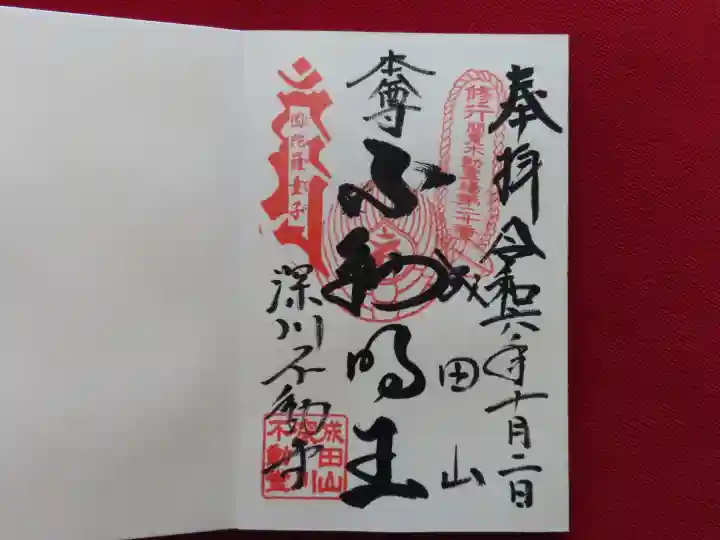 奉拝 令和六年十月二日
成田山
修行 関東不動霊場第二十番
本尊
不動明王
深川不動堂
成田山
深川
不動堂